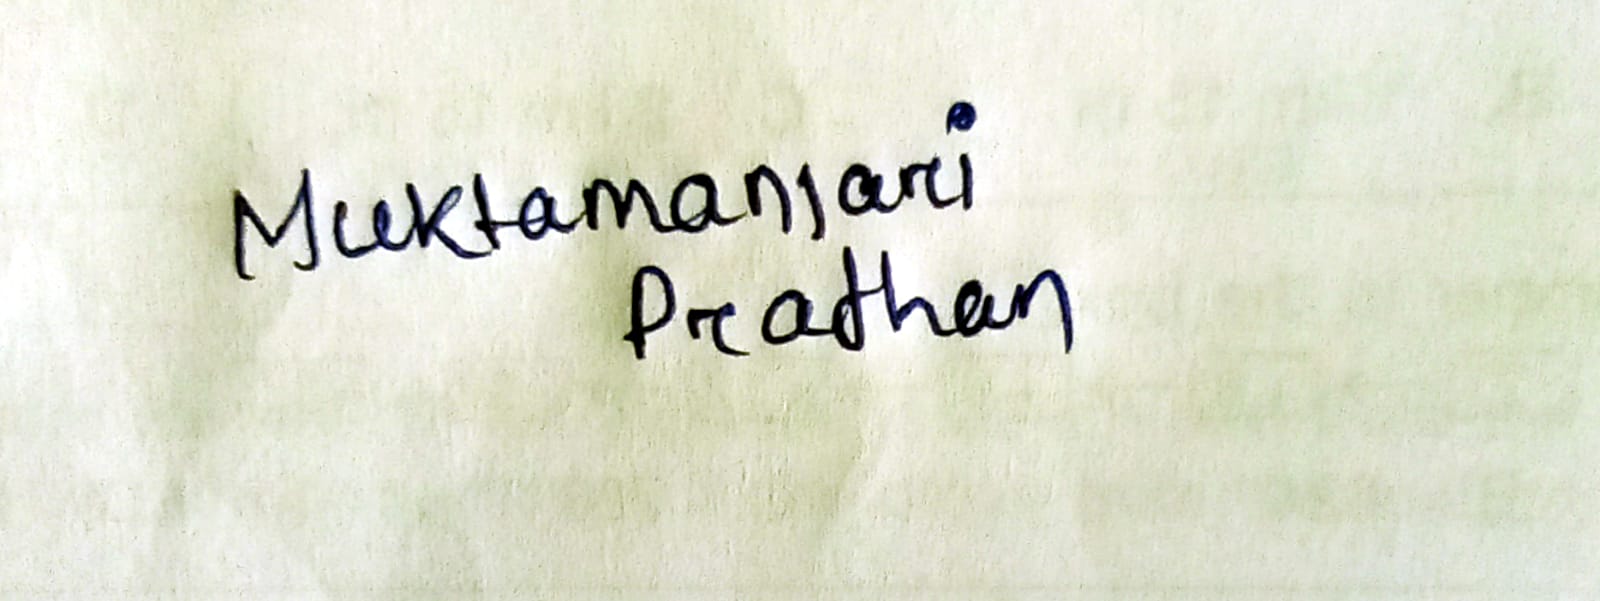 Muktamanjari
Pradhan